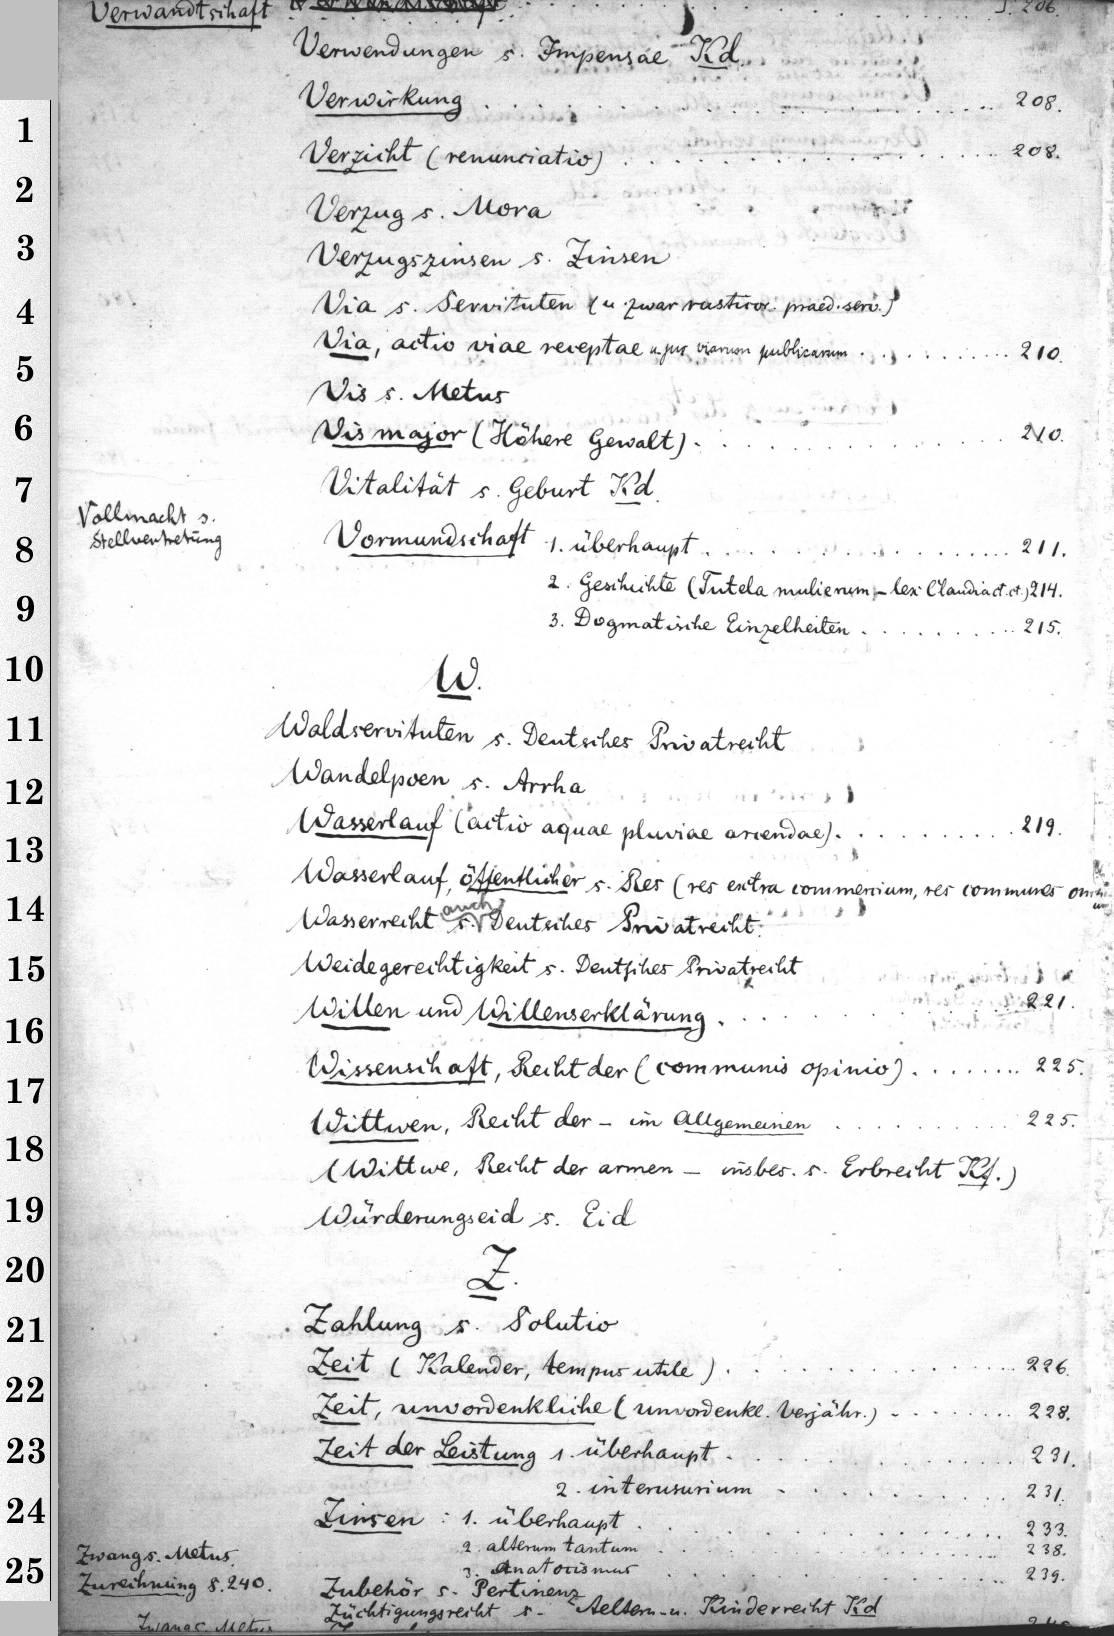 Verwandtschaft . . . . . . . . . S. 206.
Verwendungen s. Impensae Kd.
Verwirkung . . . . . . . . . 208.
Verzicht (renunciatio) . . . . . . . . . 208.
Verzug s. Mora
Verzugszinsen s. Zinsen
Via s. Servituten (u. zwar rusticor. praed. serv.)
Via, actio viae receptae u. jus viarum publicarum . . . . . . . . . 210.
Vis s. Metus
Vis major (Höhere Gewalt) . . . . . . . . . 210.
Vitalität s. Geburt Kd.
Vollmacht s.
Stellvertretung
Vormundschaft 1. überhaupt . . . . . . . . . 211.
2. Geschichte (Tutela mulierum – lex Claudia ct. ct.) 214.
3. Dogmatische Einzelheiten . . . . . . . . . 215.
W.
Waldservituten s. Deutsches Privatrecht
Wandelpoen s. Arrha
Wasserlauf (actio aquae pluviae arcendae) . . . . . . . . . 219.
Wasserlauf, öffentlicher s. Res (res extra commercium, res communes
Wasserrecht s. auch Deutsches Privatrecht.
Weidegerechtigkeit s. Deutsches Privatrecht
Willen und Willenserklärung . . . . . . . . . 221.
Wissenschaft, Recht der (communis opinio) . . . . . . . . 225.
Wittwen, Recht der – im Allgemeinen . . . . . . . . . 225.
(Wittwe, Recht der armen – insbes. s. Erbrecht Kf.)
Würderungseid s. Eid
Z.
Zahlung s. Solutio
Zeit (Kalender, tempus utile) . . . . . . . . . 226.
Zeit, unvordenkliche (unvordenkl. Verjähr.) . . . . . . . . 228.
Zeit der Leistung 1. überhaupt . . . . . . . . . 231.
2. interusurium . . . . . . . . 231.
Zinsen : 1. überhaupt . . . . . . . . . 233.
2. alterum tantum . . . . . . . . . 238.
3. Anatocismus . . . . . . . . . 239.
Zwang s. Metus.
Zurechnung S. 240.
Zubehör s. Pertinenz
Züchtigungsrecht s. Aeltern- u. Kinderrecht Kd
Zwang s. Metus
1
2
3
4
5
6
7
8
9
10
11
12
13
14
15
16
17
18
19
20
21
22
23
24
25